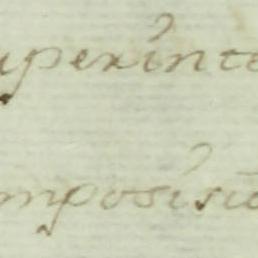 uperinte
mposisio